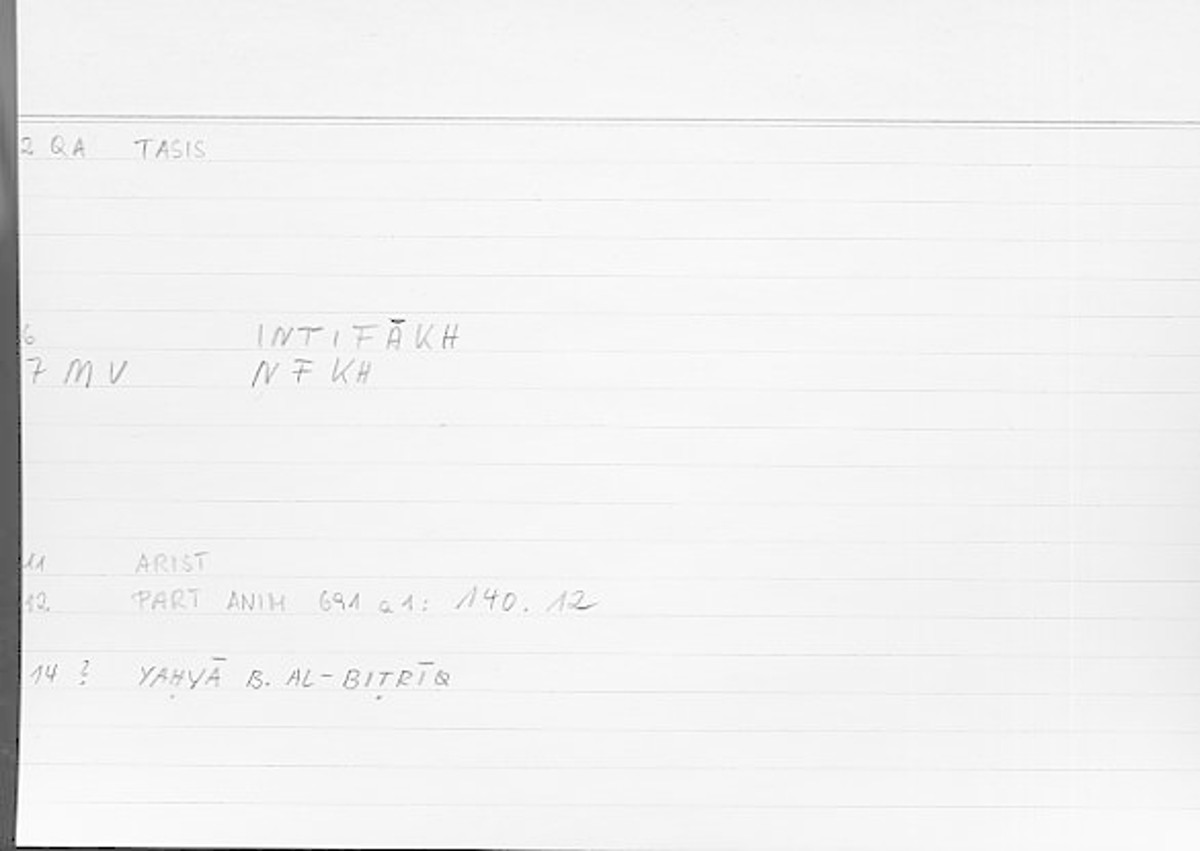 2 QA TASIS
6 INTIFĀKH
7 MV NFKH
11 ARIST
12 PART ANIM 691 a1: 140.12
14 ? YAḤYĀ B. AL-BIṬRĪQ